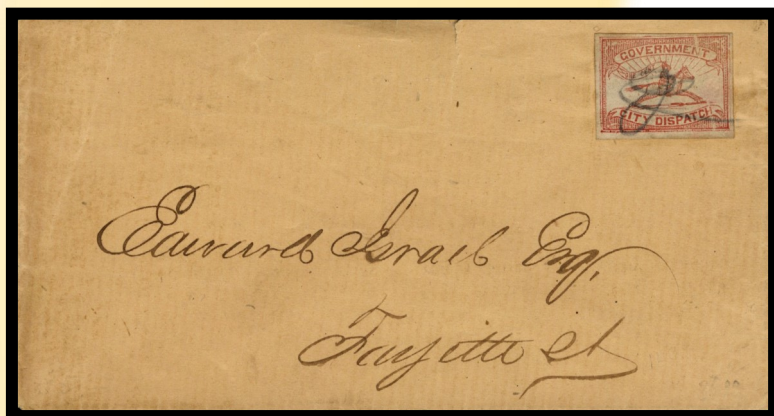 GOVERNMENT
CITY DISPATCH
Edward Israel Esq.
Fayette St